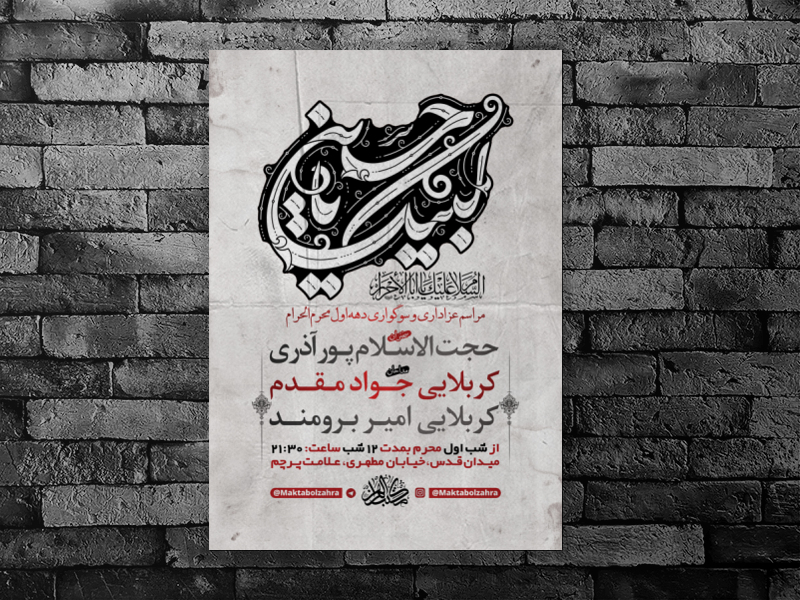 لبیک یا حسین
السلام علیک یا ابا الاحرار
مراسم عزاداری و سوگواری دهه اول محرم الحرام
حجت الاسلام پور آذری
کربلایی جواد مقدم
کربلایی امیر برومند
از شب اول محرم بمدت ۱۲ شب ساعت: ۲۱:۳۰
میدان قدس، خیابان مطهری، علامت پرچم
@Maktabolzahra @Maktabolzahra